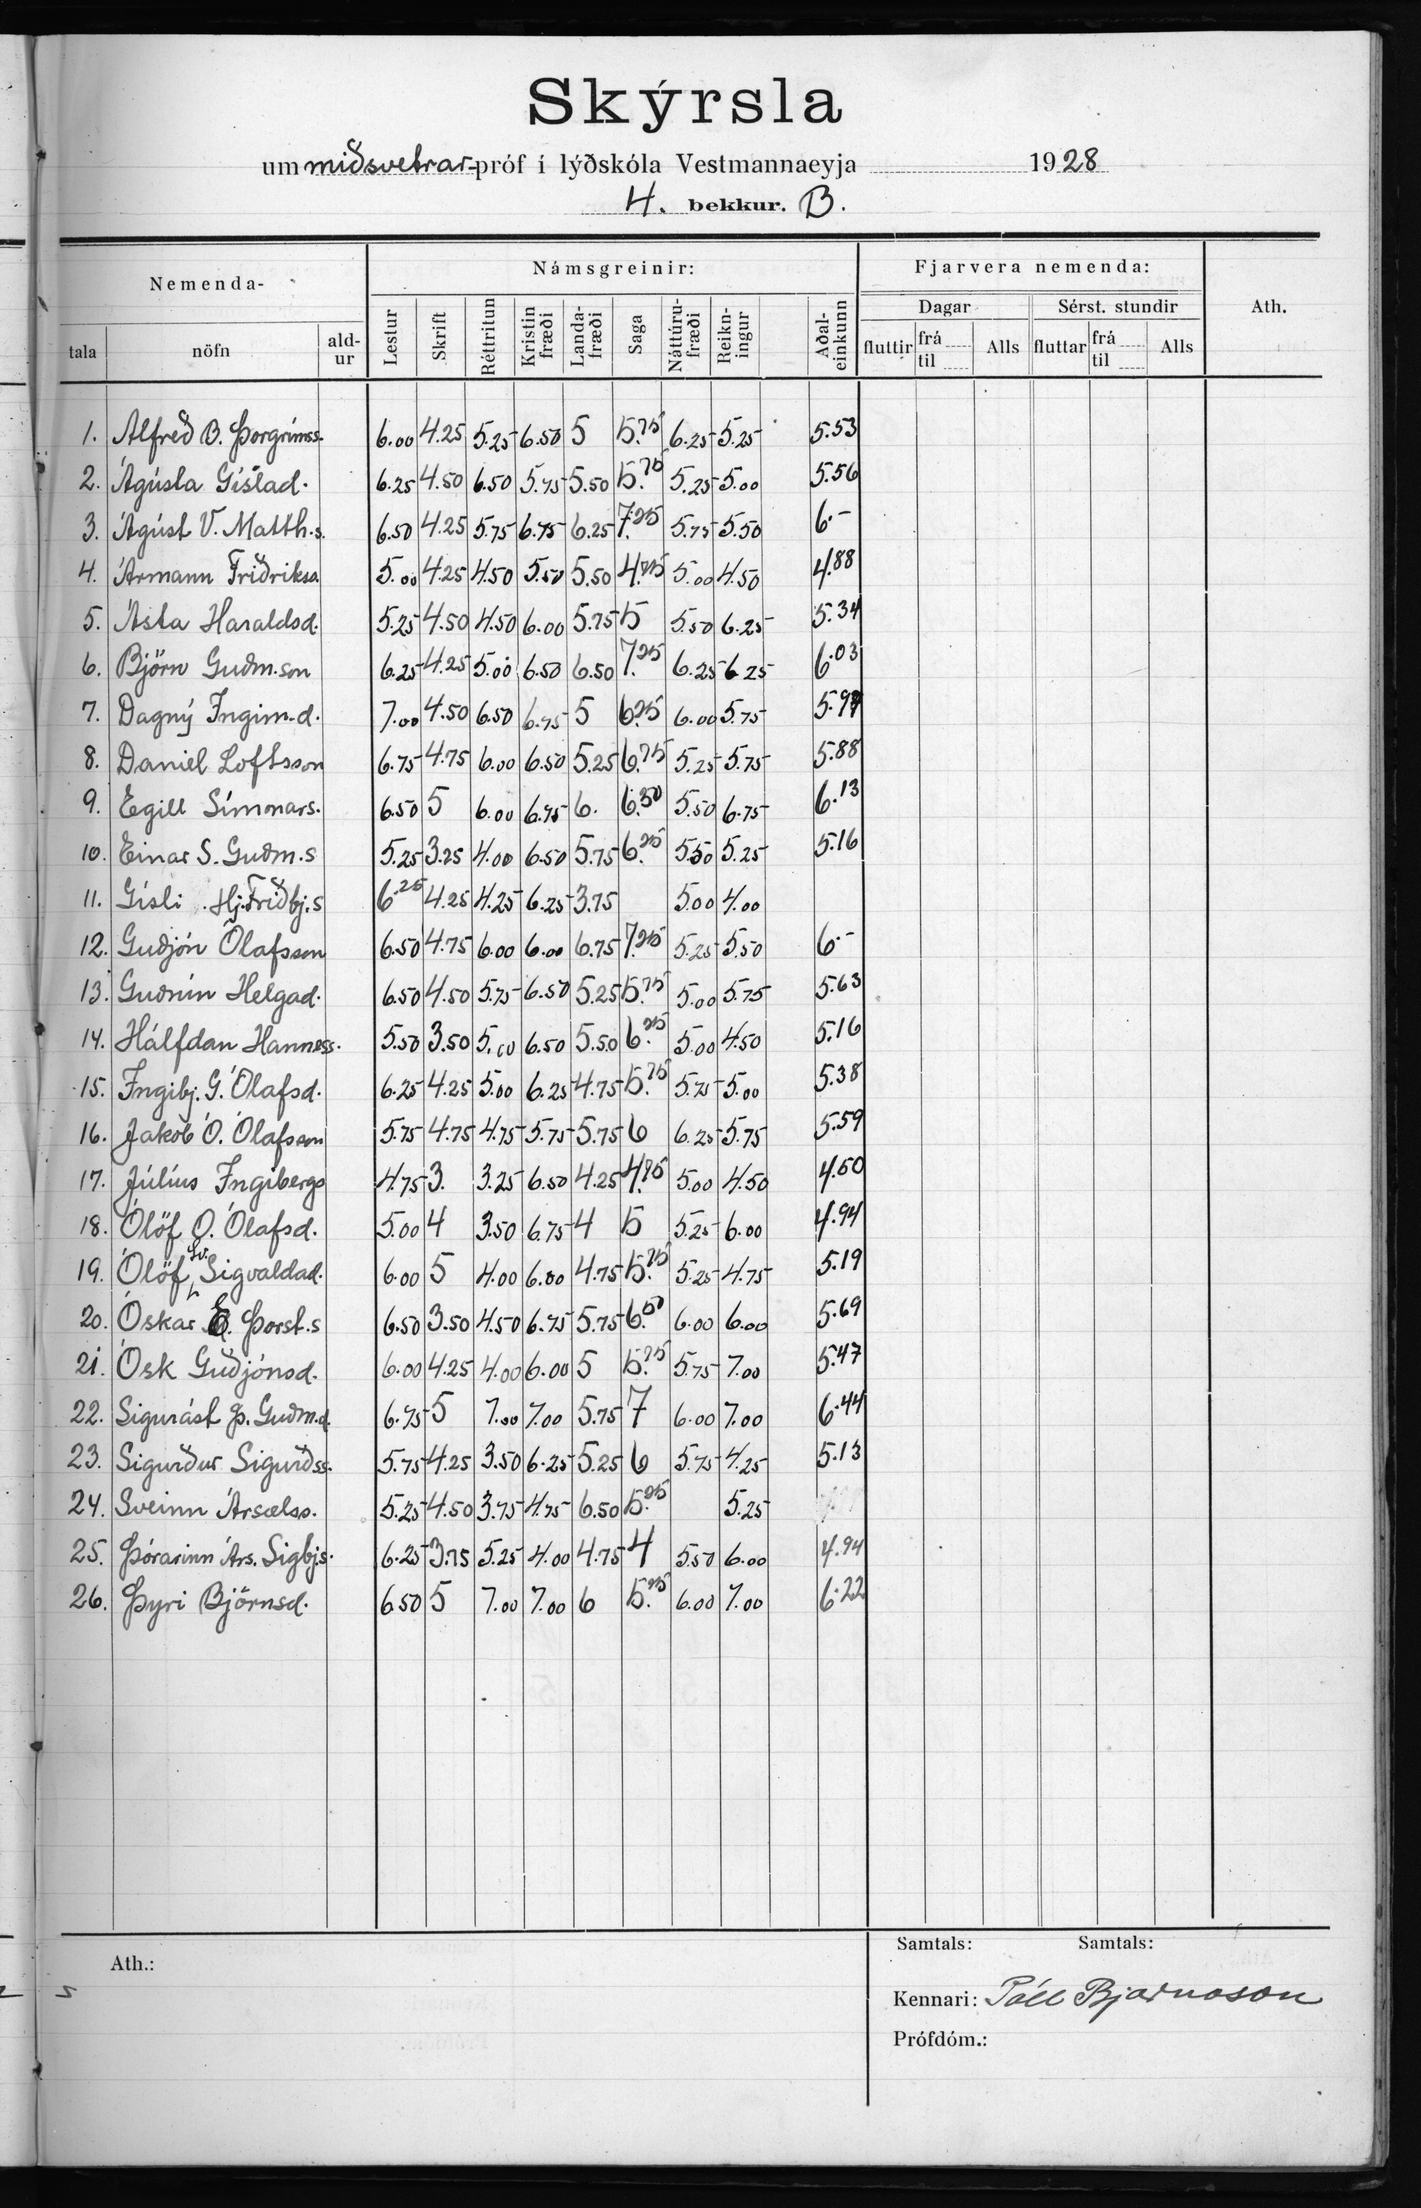 Skýrsla
um miðsvetrar-próf í lýðskóla Vestmannaeyja 1928
4. bekkur. B.
Nemenda- Námsgreinir: Fjarvera nemenda: Ath.
Dagar Sérst. stundir
tala nöfn ald-ur Lestur Skrift Réttritun Kristin fræði Landa-fræði Saga Náttúru-fræði Reikn-ingur Aðal-einkunn fluttir frá til Alls fluttar frá til Alls
1. Alfreð B. Þorgrímss. 6.00 4.25 5.25 6.50 5 5.75 6.25 5.25 5.53
2. Ágústa Gíslad. 6.25 4.50 6.50 5.75 5.50 5.75 5.25 5.00 5.56
3. Ágúst V. Matth.s. 6.50 4.25 5.75 6.75 6.25 7.25 5.75 5.50 6.-
4. Ármann Friðrikss. 5.00 4.25 4.50 5.50 5.50 4.75 5.00 4.50 4.88
5. Ásta Haraldsd. 5.25 4.50 4.50 6.00 5.75 5 5.50 6.25 5.34
6. Björn Guðm.son 6.25 4.25 5.00 6.50 6.50 7.25 6.25 6.25 6.03
7. Dagný Ingim.d. 7.00 4.50 6.50 6.75 5 6.25 6.00 5.75
8. Daníel Loftsson 6.75 4.75 6.00 6.50 5.25 6.75 5.25 5.75 5.88
9. Egill Símonars. 6.50 5 6.00 6.75 6. 6.50 5.50 6.75 6.13
10. Einar S. Guðm.s 5.25 3.25 4.00 6.50 5.75 6.25 5.50 5.25 5.16
11. Gísli Hj. Friðbj.s 6.25 4.25 4.25 6.25 3.75 5.00 4.00
12. Guðjón Ólafsson 6.50 4.75 6.00 6.00 6.75 7.25 5.25 5.50 6.-
13. Guðrún Helgad. 6.50 4.50 5.75 6.50 5.25 5.75 5.00 5.75 5.63
14. Hálfdan Hanness. 5.50 3.50 5.00 6.50 5.50 6.25 5.00 4.50 5.16
15. Ingibj. G. Ólafsd. 6.25 4.25 5.00 6.25 4.75 5.75 5.75 5.00 5.38
16. Jakob Ó. Ólafsson 5.75 4.75 4.75 5.75 5.75 6 6.25 5.75 5.59
17. Júlíus Ingibergs 4.75 3. 3.25 6.50 4.25 4.75 5.00 4.50 4.50
18. Ólöf O. Ólafsd. 5.00 4 3.50 6.75 4 5 5.25 6.00 4.94
19. Ólöf Sv. Sigvaldad. 6.00 5 4.00 6.00 4.75 5.75 5.25 4.75 5.19
20. Óskar E. Þorst.s 6.50 3.50 4.50 6.75 5.75 6.50 6.00 6.00 5.69
21. Ósk Guðjónsd. 6.00 4.25 4.00 6.00 5 5.75 5.75 7.00 5.47
22. Sigurást Þ. Guðm.d. 6.75 5 7.00 7.00 5.75 7 6.00 7.00 6.44
23. Sigurður Sigurðss. 5.75 4.25 3.50 6.25 5.25 6 5.75 4.25 5.13
24. Sveinn Ársælss. 5.25 4.50 3.75 4.75 6.50 5.25 5.25
25. Þórarinn Árs. Sigbj.s. 6.25 3.75 5.25 4.00 4.75 4 5.50 6.00 4.94
26. Þyri Björnsd. 6.50 5 7.00 7.00 6 5.25 6.00 7.00 6.22
Samtals: Samtals:
Ath.:
Kennari: Páll Bjarnason
Prófdóm.: